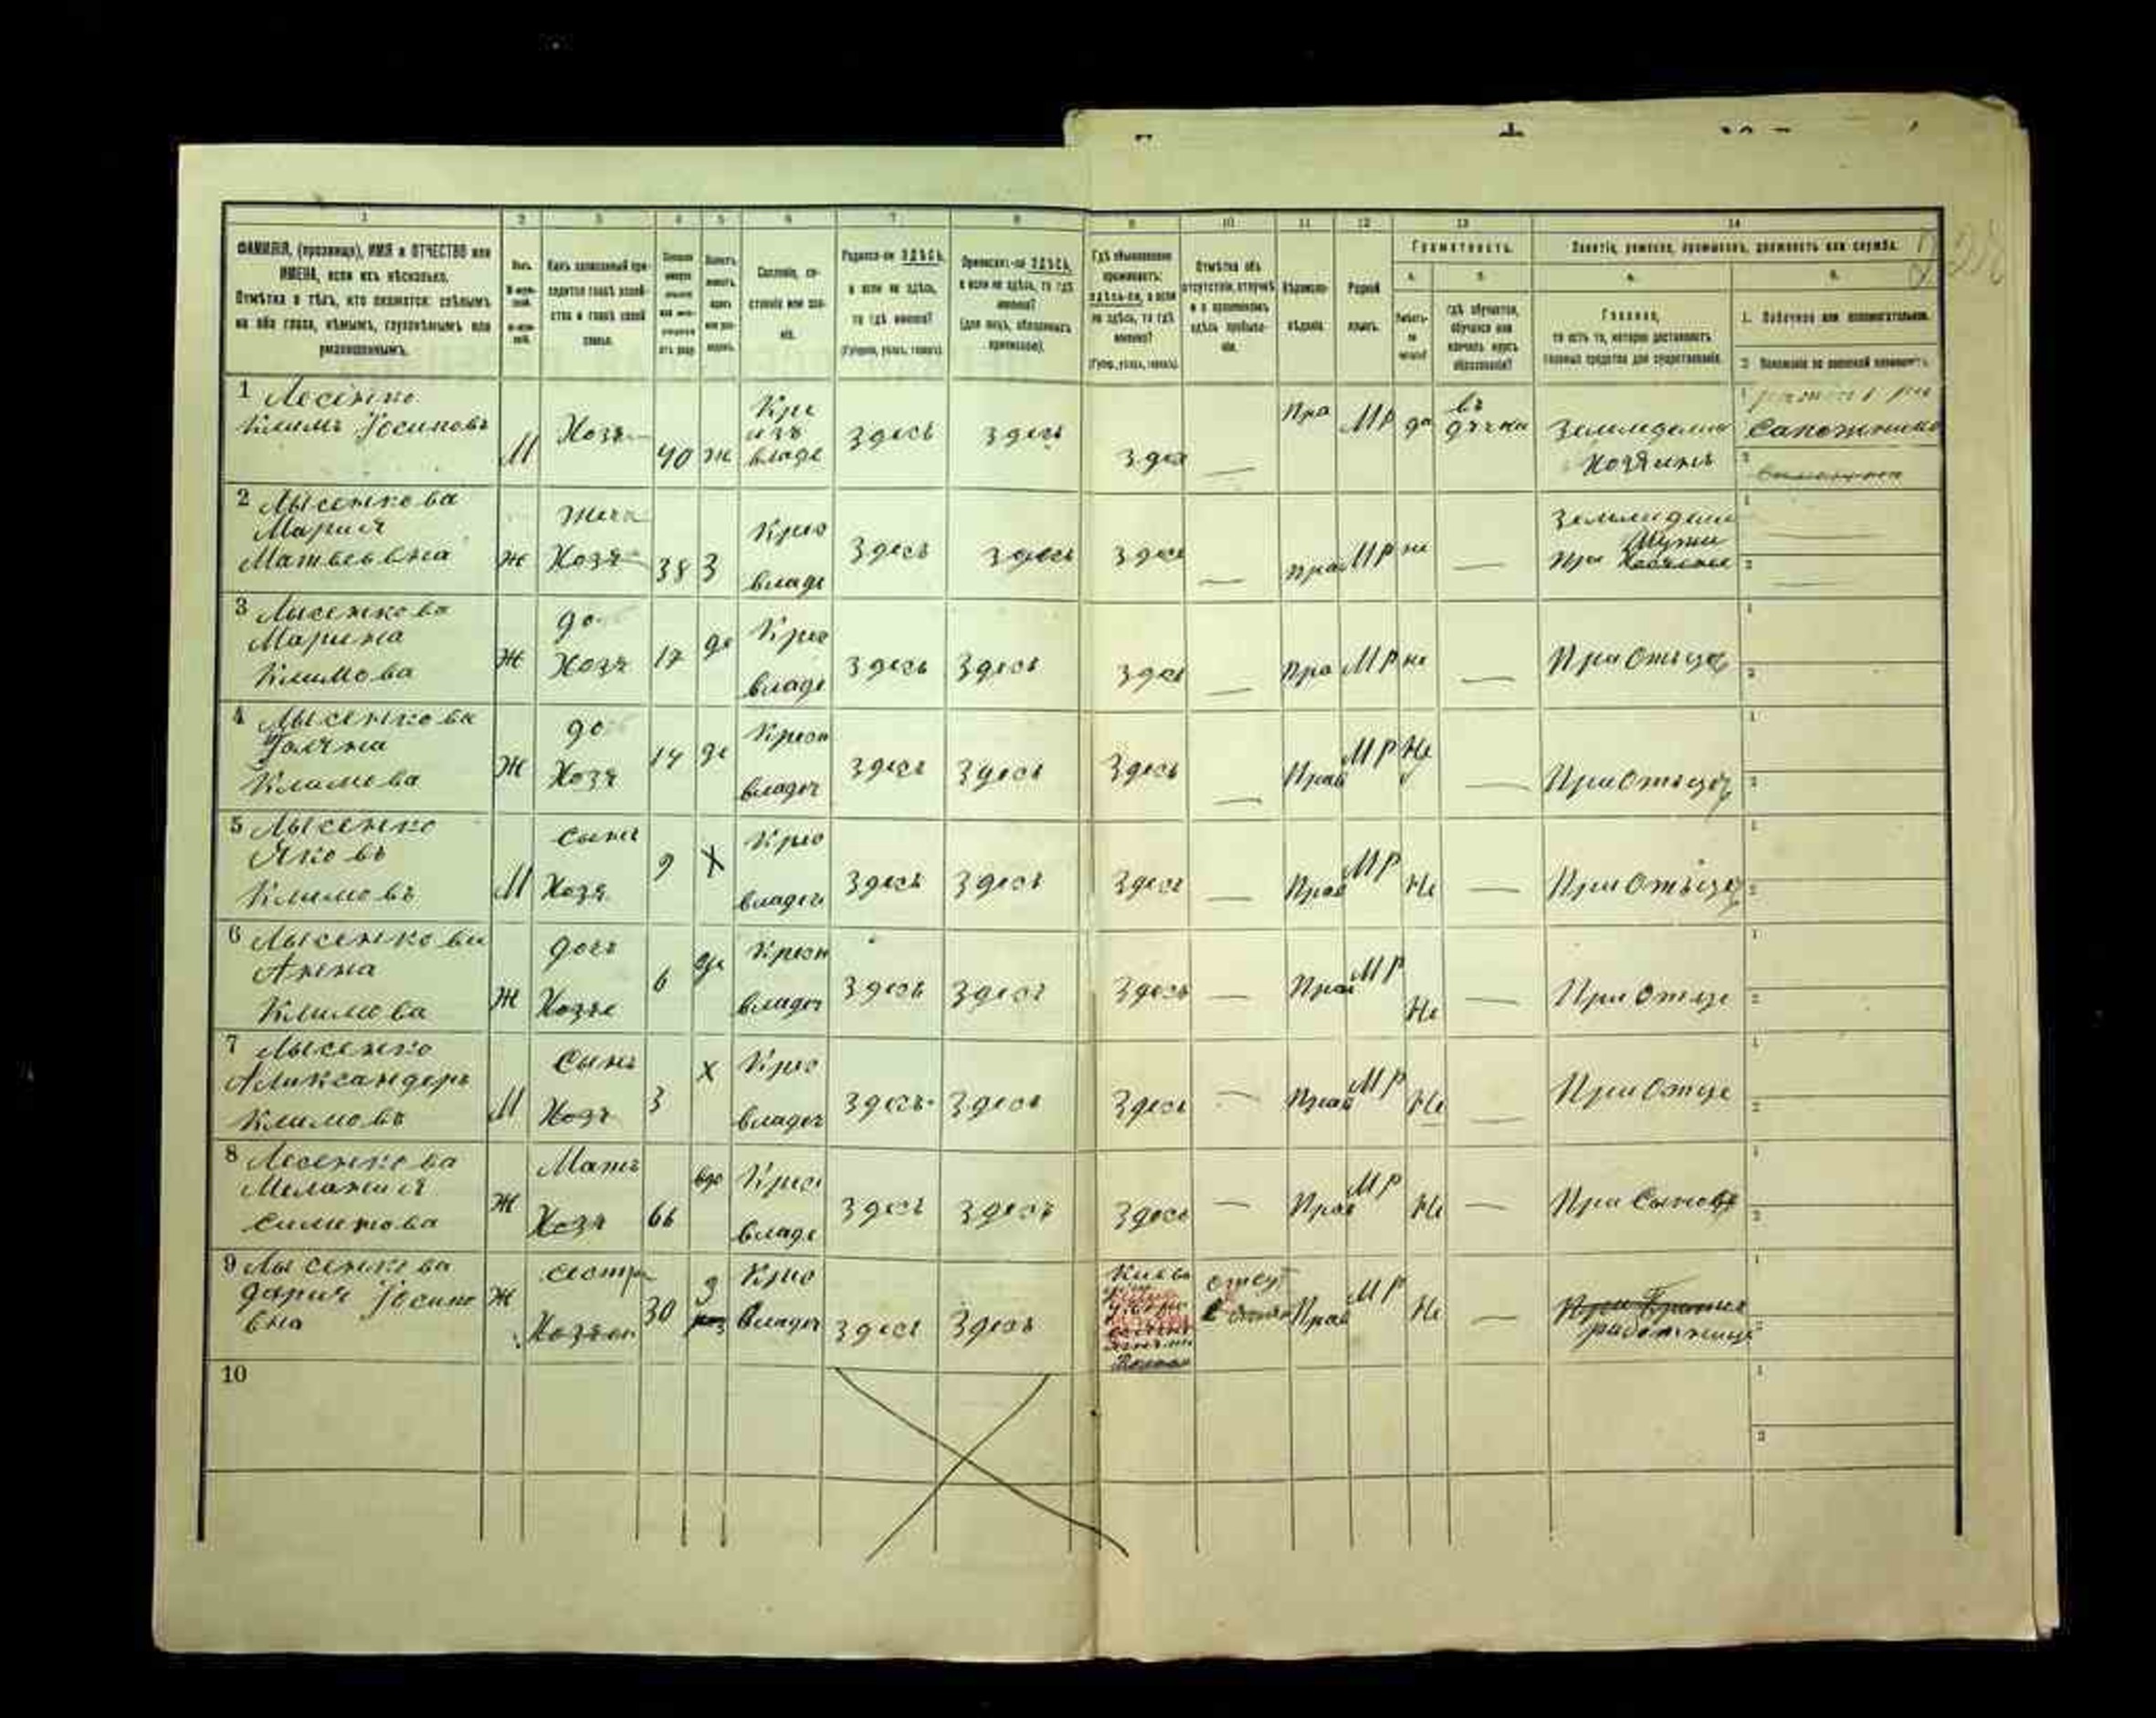 1 2 3 4 5 6 7 8 9 10 11 12 13 14
ФАМИЛІЯ, (прозвище), ИМЯ и ОТЧЕСТВО или
ИМЕНА, если ихъ нѣсколько.
Отмѣтка о тѣхъ, кто окажется: слѣпымъ
на оба глаза, нѣмымъ, глухонѣмымъ или
умалишеннымъ.
Полъ.
Сословіе, со-
стояніе или зва-
ніе.
Родился-ли ЗДѢСЬ,
а если не здѣсь,
то гдѣ именно?
(Губернія, уѣздъ, городъ).
Приписанъ-ли ЗДѢСЬ,
а если не здѣсь, то гдѣ
именно?
(для лицъ, обязанныхъ
припискою).
Гдѣ обыкновенно
проживаетъ:
здѣсь-ли, а если
не здѣсь, то гдѣ
именно?
(Губер., уѣздъ, городъ).
Отмѣтка объ
отсутствіи, отлучкѣ
и о временномъ
здѣсь пребыва-
ніи.
Вѣроиспо-
вѣданіе.
Родной
языкъ.
Грамотность.
а. б.
Умѣетъ-
ли
читать?
гдѣ обучается,
обучался или
кончилъ курсъ
образованія?
Занятіе, ремесло, промыселъ, должность или служба.
а. б.
Главное,
то есть то, которое доставляетъ
главныя средства для существованія.
1. Побочное или вспомогательное.
2. Положеніе по воинской повинности.
1 Лесінко
Климъ Іосиповъ
М Хозя 40 ж
Кре
изъ
владе
здесь здесь здес Пра МР да
въ
дячка
Земледелие
Хозяинъ
Сапожник
2 Лысенкова
Мария
Матвеевна
Ж
жена
Хозя
38 З
Крес
владе
здесь здесь здес — Прав МР не —
Земледели
При Мужи
3 Лысенкова
Марина
Климова
Ж
до
Хозя
17 де
Крес
владе
здесь здесь здес — Пра МР не — При Отьце
4 Лысенкова
Климова
Ж
до
Хозя
14 де
Крест
владеч
здесь здесь здесь — Прав МР Не — При Отьце
5 Лысенко
Яковъ
Климовъ
М
сынъ
Хозя
9 Х
Крес
владеч
здесь здесь здесь — Прав МР Не — При Отьце
6 Лысенкова
Анна
Климова
Ж
дочь
Хозя
6 де
Крест
владеч
здесь здесь здесь — Прав МР Не — При Отце
7 Лысенко
Александеръ
Климовъ
М
Сынъ
Хозя
3 Х
Крес
владеч
здесь здесь здесь — Прав МР Не — При Отце
8 Лесенкова
Мелания
Ж
Мать
Хозя
66 вдо
Крес
владе
здесь здесь здесь — Прав МР Не — При Сынове
9 Лысенкова
Дария Іосипо
вна
Ж
сестра
Хозяен
30 З
Крес
Владеч
здесь здесь
Киевс
отсут
Прав МР Не —
При Братье
работница
10